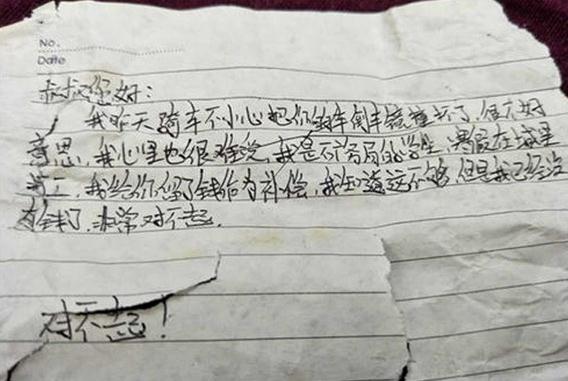 No.
Date
叔叔您好：
我昨天骑车不小心把你的车倒车镜撞坏了，很不好
意思，我心里也很难受，我是不富裕的学生，暑假在城里
打工，我给你留了钱作为补偿，我知道这不够，但是我已经没
有钱了，非常对不起。
对不起！